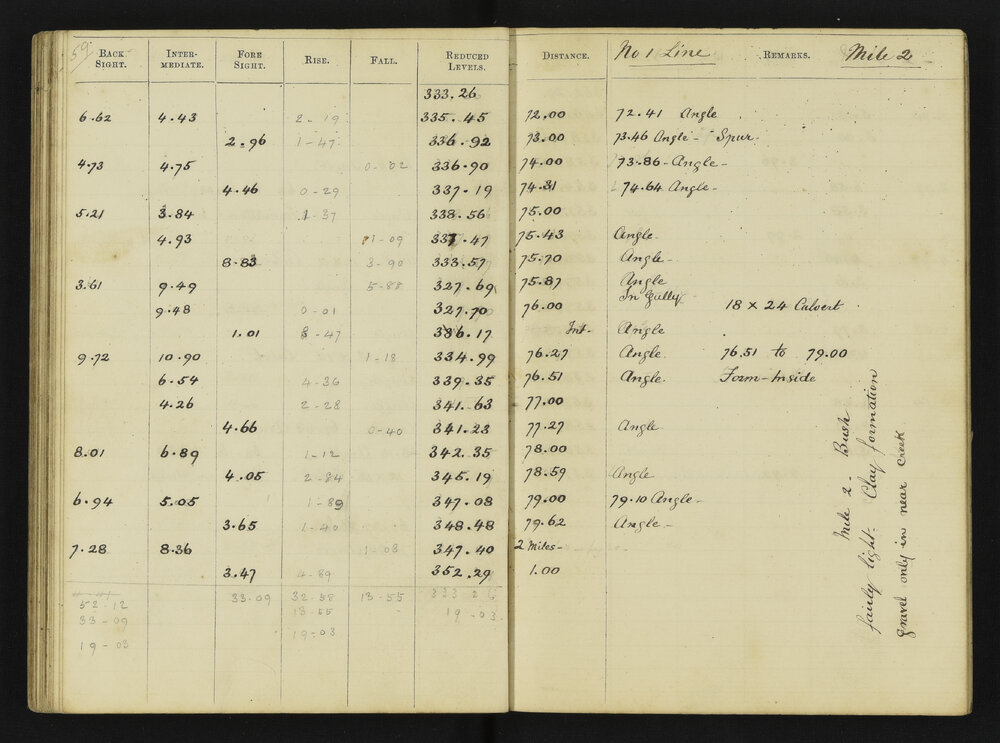 59
BACK SIGHT. INTER-MEDIATE. FORE SIGHT. RISE. FALL. REDUCED LEVELS. DISTANCE. No 1 Line REMARKS. Mile 2
333.26
6.62 4.43 2-19 335.45 72.00 72.41 Angle
2.96 1-47 336.92 73.00 73.46 Angle - Spur.
4.73 4.75 0-02 336.90 74.00 73.86 - Angle -
4.46 0-29 337.19 74.31 74.64 Angle -
5.21 3.84 1-37 338.56 75.00
4.93 1-09 337.47 75.43 Angle.
8.83 3-90 333.57 75.70 Angle -
3.61 9.49 5-88 327.69 75.87 Angle
9.48 0-01 327.70 76.00 In Gully 18 x 24 Culvert
1.01 8-47 336.17 Int- Angle
9.72 10.90 1-18 334.99 76.27 Angle. 76.51 to 79.00
6.54 4-36 339.35 76.51 Angle. Form - Inside
4.26 2-28 341.63 77.00
4.66 0-40 341.23 77.27 Angle
8.01 6.89 1-12 342.35 78.00
4.05 2-84 345.19 78.59 Angle
6.94 5.05 1-89 347.08 79.00 79.10 Angle -
3.65 1-40 348.48 79.62 Angle -
7.28 8.36 1-08 347.40 2 Miles -
3.47 4-89 352.29 1.00
52-12 33-09 32-58 13-55 333 26
33-09 13-55 19-03
19-03 19-03
Mile 2 - Bush
fairly light. Clay formation
gravel only in near creek